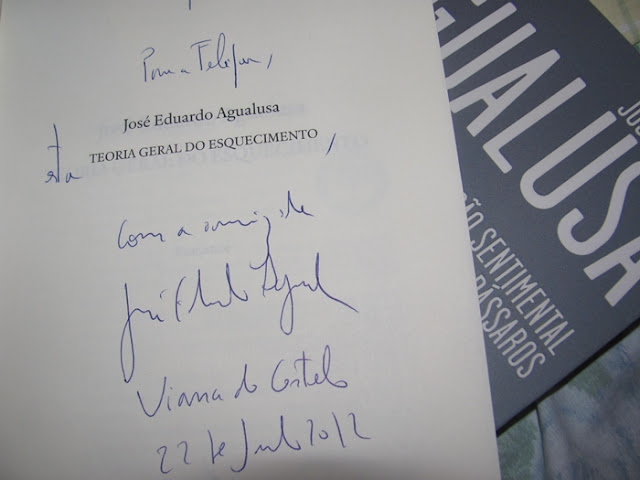 Para
José Eduardo Agualusa
esta TEORIA GERAL DO ESQUECIMENTO,
Com a amizade
José Eduardo Agualusa
Viana do Castelo
22 de 2012
GUALUSA
ÃO SENTIMENTAL
PÁSSAROS